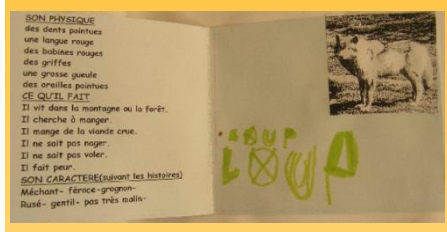 SON PHYSIQUE
des dents pointues
une langue rouge
des babines rouges
des griffes
une grosse gueule
des oreilles pointues
CE QU'IL FAIT
Il vit dans la montagne ou la forêt.
Il cherche à manger.
Il mange de la viande crue.
Il ne sait pas nager.
Il ne sait pas voler.
Il fait peur.
SON CARACTERE(suivant les histoires)
Méchant- féroce-grognon-
Rusé- gentil- pas très malin-
LOUP
LOUP